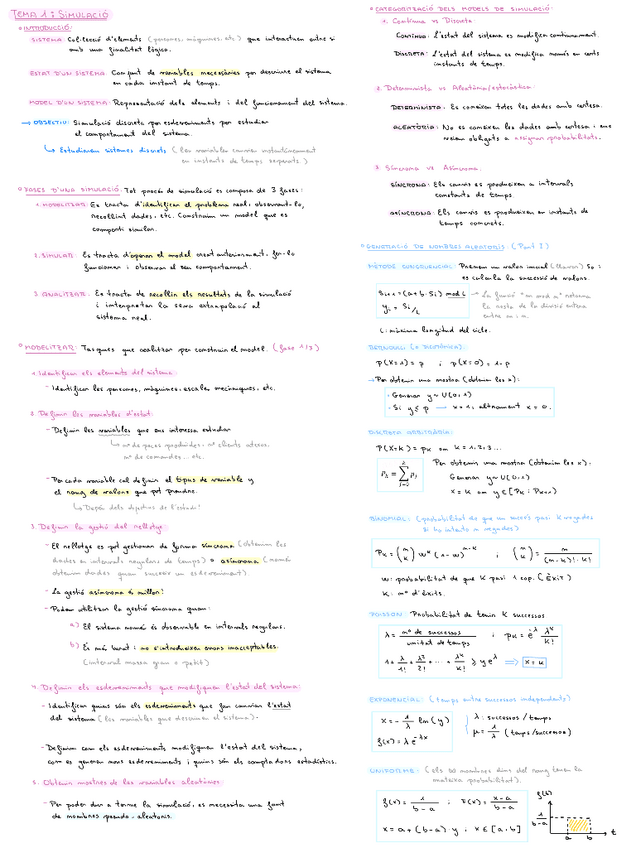 TEMA 1: SIMULACIÓ
INTRODUCCIÓ:
SISTEMA: Col·lecció d'elements (persones, màquines, etc.) que interactuen entre si
amb una finalitat lògica.
ESTAT D'UN SISTEMA: Conjunt de variables necessàries per descriure el sistema
en cada instant de temps.
MODEL D'UN SISTEMA: Representació dels elements i del funcionament del sistema.
→ OBJECTIU: Simulació discreta per esdeveniments per estudiar
el comportament del sistema.
↳ Estudiarem sistemes discrets (les variables canvien instantàniament
en instants de temps separats.)
FASES D'UNA SIMULACIÓ: Tot procés de simulació es composa de 3 fases:
1. MODELITZAR: Es tracta d'identificar el problema real, observant-lo,
recollint dades, etc. Construim un model que es
comporti similar.
2. SIMULAR: Es tracta d'operar el model creat anteriorment, fer-lo
funcionar i observar el seu comportament.
3. ANALITZAR: Es tracta de recollir els resultats de la simulació
i interpretar la seva extrapolació al
sistema real.
MODELITZAR: Tasques que realitzar per construir el model. (fase 1/3)
1. Identificar els elements del sistema
- Identificar les persones, màquines, escales mecàniques, etc.
2. Definir les variables d'estat:
- Definir les variables que ens interessa estudiar
↳ nº de peces produïdes, nº clients atesos,
nº de comandes... etc.
- Per cada variable cal definir el tipus de variable y
el rang de valors que pot prendre.
↳ Depèn dels objectius de l'estudi!
3. Definir la gestió del rellotge.
- El rellotge es pot gestionar de forma síncrona (obtenim les
dades en intervals regulars de temps) o asíncrona (només
obtenim dades quan succeeix un esdeveniment).
- La gestió asíncrona és millor!
- Podem utilitzar la gestió síncrona quan:
a) El sistema només és observable en intervals regulars.
b) És més barat i no s'introdueixen errors inacceptables.
(interval massa gran o petit)
4. Definir els esdeveniments que modifiquen l'estat del sistema:
- Identificar quins són els esdeveniments que fan canviar l'estat
del sistema (les variables que descriuen el sistema).
- Definir com els esdeveniments modifiquen l'estat del sistema,
com es generen nous esdeveniments i quins són els comptadors estadístics.
5. Obtenir mostres de les variables aleatòries:
- Per poder dur a terme la simulació, es necessita una font
de nombres pseudo-aleatoris.
CATEGORITZACIÓ DELS MODELS DE SIMULACIÓ:
1. Continua vs Discreta
CONTINUA: L'estat del sistema es modifica contínuament.
DISCRETA: L'estat del sistema es modifica només en certs
instants de temps.
2. Determinista vs Aleatòria/estocàstica:
DETERMINISTA: Es coneixen totes les dades amb certesa.
ALEATÒRIA: No es coneixen les dades amb certesa i ens
veiem obligats a assignar probabilitats.
3. Síncrona vs Asíncrona.
SÍNCRONA: Els canvis es produeixen a intervals
constants de temps.
ASÍNCRONA: Els canvis es produeixen en instants de
temps concrets.
GENERACIÓ DE NOMBRES ALEATORIS (Part I)
MÈTODE CONGRUENCIAL: Partim un valor inicial (llavor) S₀ i
es calcula la successió de valors.
Sᵢ₊₁ = (a + b·Sᵢ) mod L
yᵢ = Sᵢ/L
BERNOULLI (o DICOTÒMICA):
p(X=1) = p ; p(X=0) = 1-p
→ Per obtenir una mostra (obtenir les x):
· Generar y ~ U(0,1)
· Si y ≤ p → x=1, altrament x=0.
DISCRETA ARBITRÀRIA:
P(X=K) = pₖ on K=1,2,3...
Per obtenir una mostra (obtenir les x).
Generar y ~ U(0,1)
BINOMIAL: (probabilitat de que un succés passi K vegades
si ho intento n vegades)
K: nº d'èxits.
POISSON: Probabilitat de tenir K successos
λ = nº de successos / unitat de temps ; pₖ = e^-λ λ^K / K!
⇒ x=K
EXPONENCIAL: (temps entre successos independents)
x = -1/λ ln(y)
f(x) = λe^-λx
λ: successos / temps
μ = 1/λ (temps/successos)
UNIFORME: (els nombres dins del rang tenen la
mateixa probabilitat).
f(x) = 1/(b-a) ; F(x) = (x-a)/(b-a)
x = a + (b-a)·y ; x ∈ [a,b]
f(t)
1/(b-a)
a b t